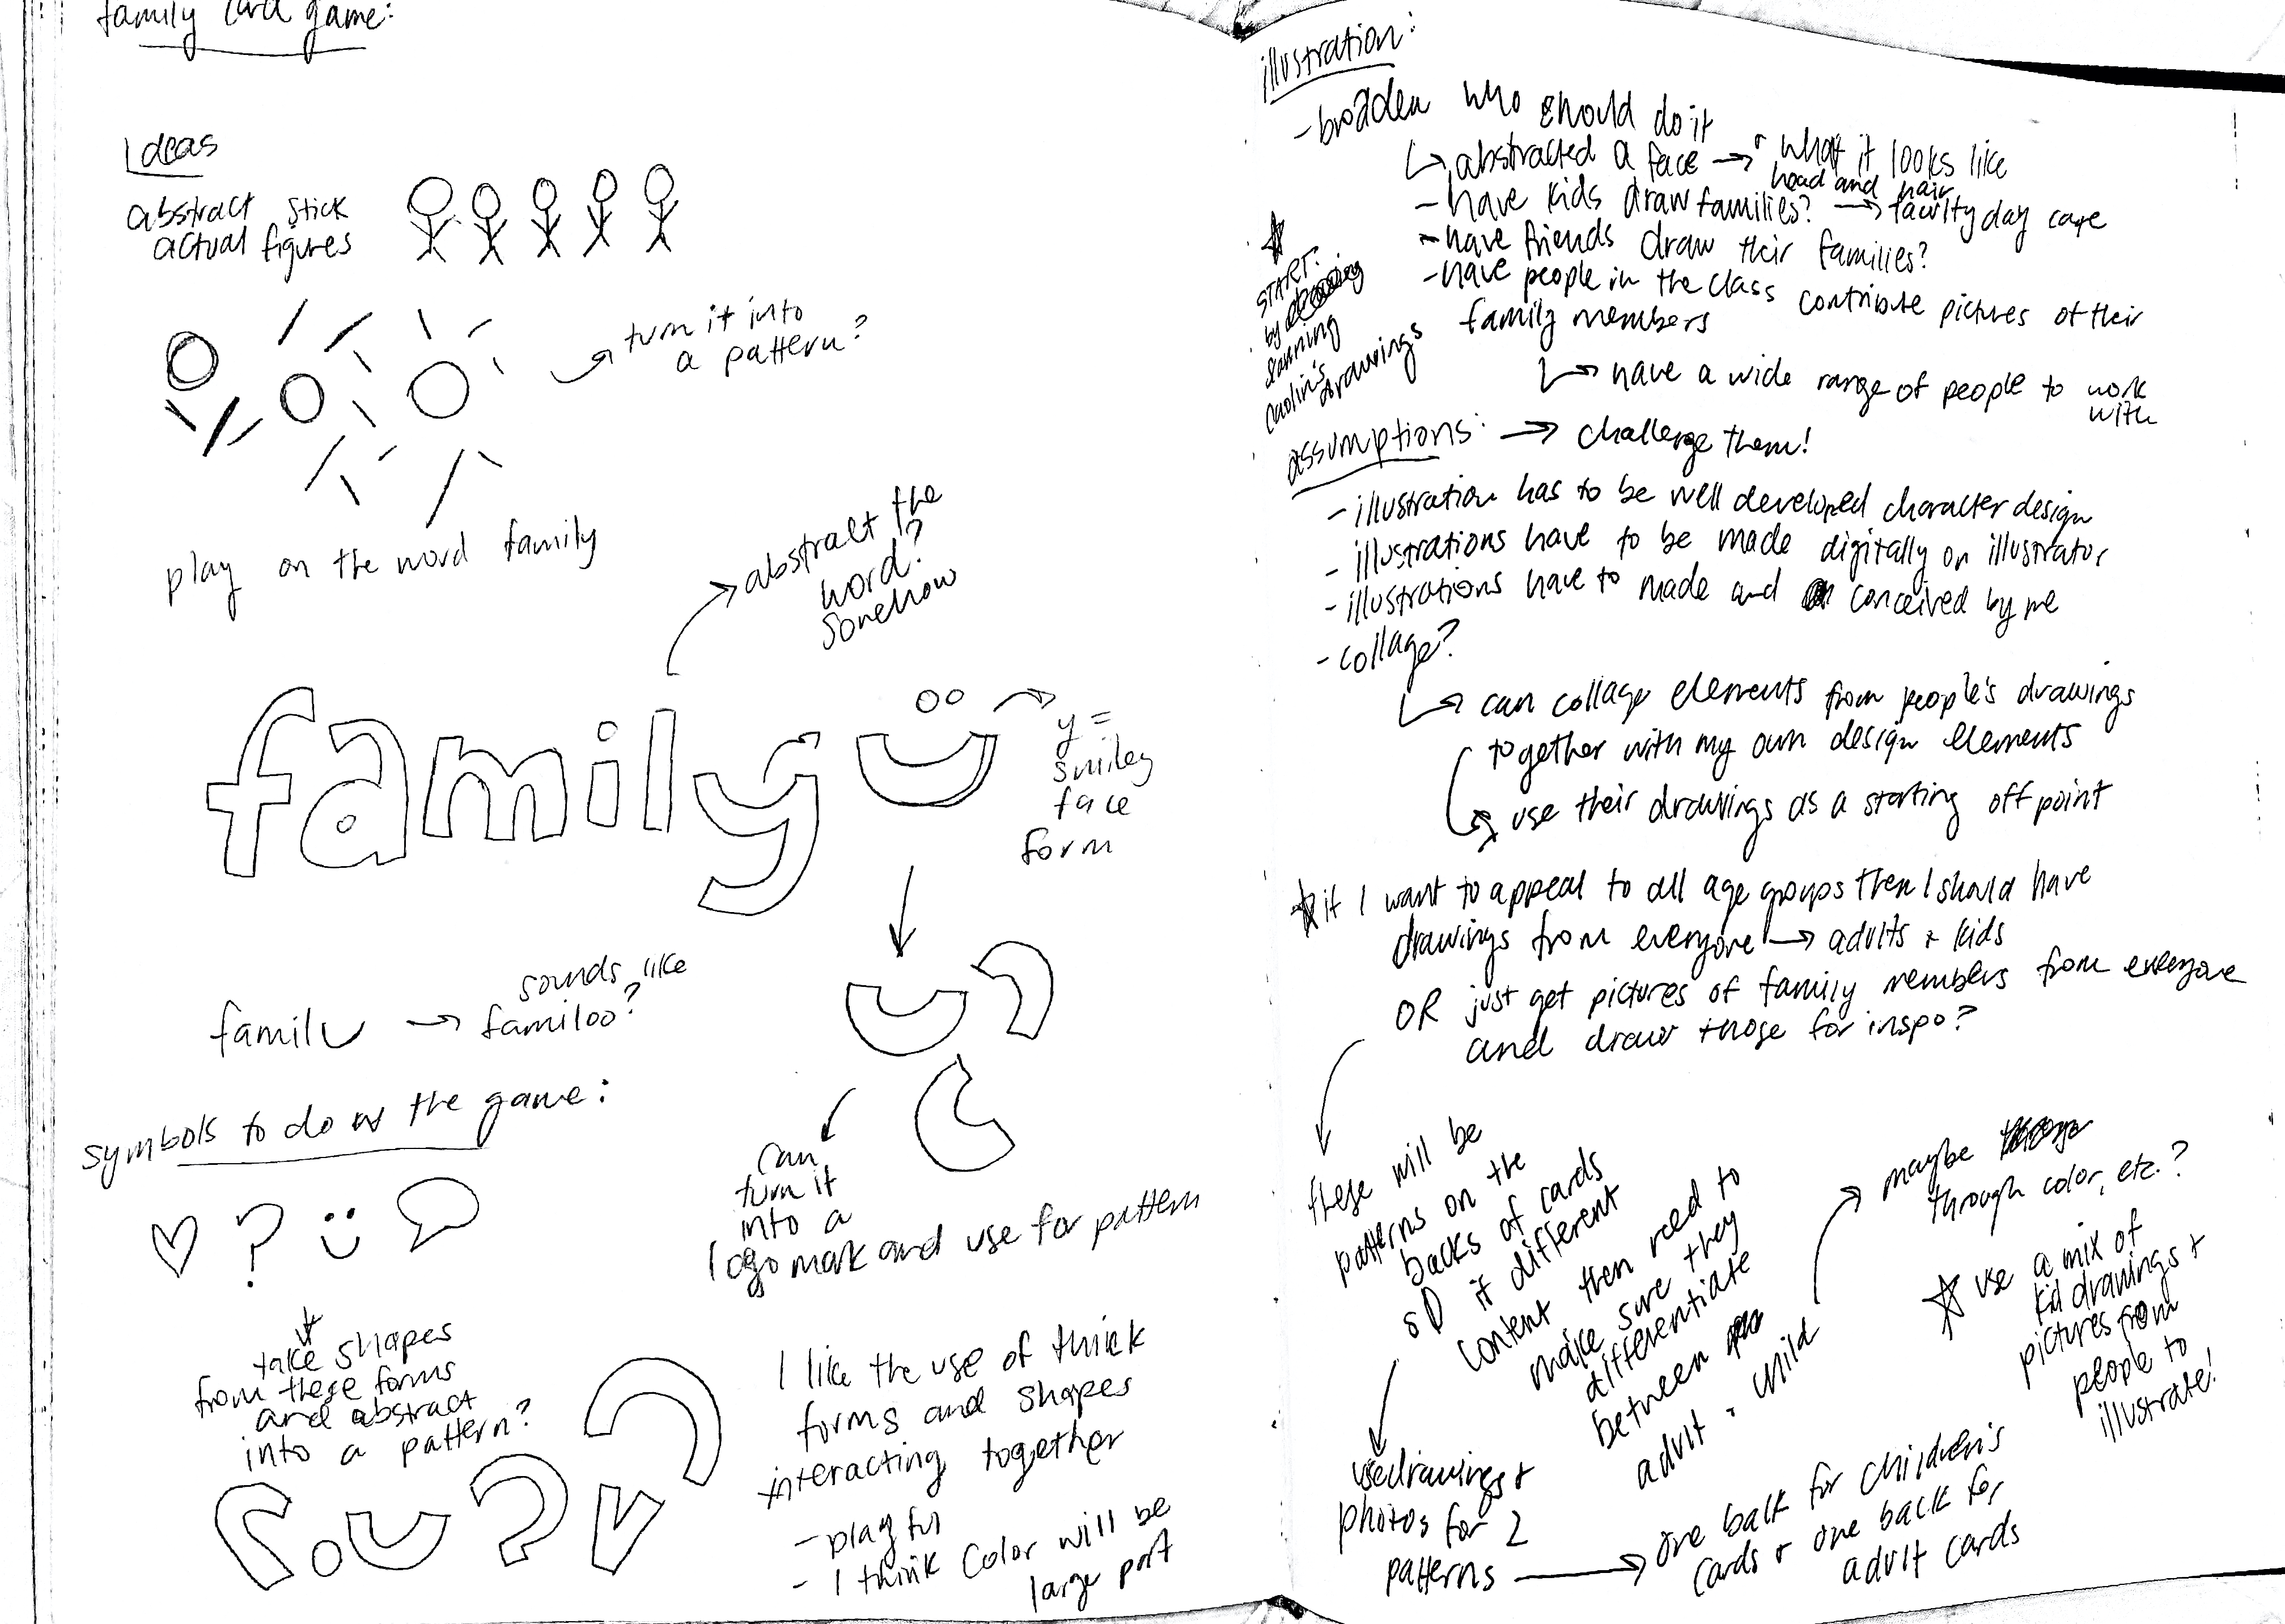 family card game:
Ideas
abstract stick
actual figures
turn it into
a pattern?
play on the word family
abstract the
word?
somehow
family
y =
smiley
face
form
famil
sounds like
familoo?
symbols to do w the game:
?
can
turn it
into a
logo mark and use for pattern
take shapes
from these forms
and abstract
into a pattern?
?
I like the use of thick
forms and shapes
interacting together
- playful
- I think color will be
large part
illustration:
- broaden who should do it
abstracted a face → what it looks like
head and hair
- have kids draw families? → faculty day care
- have friends draw their families?
- have people in the class contribute pictures of their
family members
have a wide range of people to work
with
START:
by
scanning
drawings
assumptions: → challenge them!
- illustration has to be well developed character design
- illustrations have to be made digitally on illustrator
- illustrations have to made and conceived by me
- collage?
can collage elements from people's drawings
together with my own design elements
use their drawings as a starting off point
if I want to appeal to all age groups then I should have
drawings from everyone → adults + kids
OR just get pictures of family members from everyone
and draw those for inspo?
these will be
patterns on the
backs of cards
so if different
content then need to
make sure they
differentiate
between
adult + child
maybe
through color, etc.?
use a mix of
kid drawings +
pictures from
people to
illustrate!
use drawings +
photos for 2
patterns → one back for children's
cards + one back for
adult cards